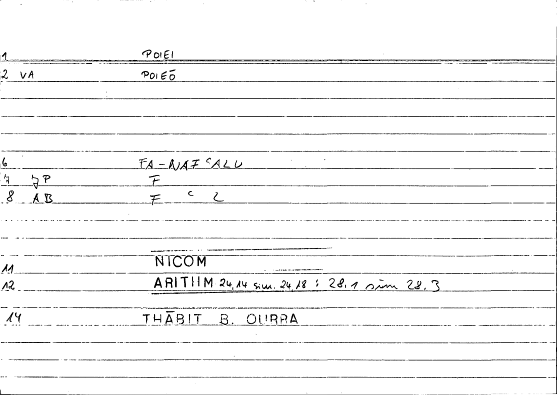 1 POIEI
2 VA POIEŌ
6 FA-NAFʿALU
7 JP F
8 AB F ʿ L
11 NICOM
12 ARITIIM 24,14 sim. 24,18 : 28,1 sim 28,3
14 THĀBIT B. QURRA